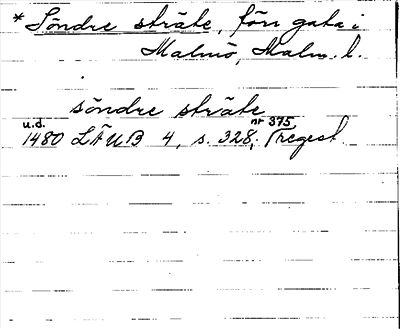 * Söndre sträte, förr gata i
Malmö, Malm. l.
söndre sträte
u.d. nr 375
1480 LÄUB 4, s. 328, (regest.